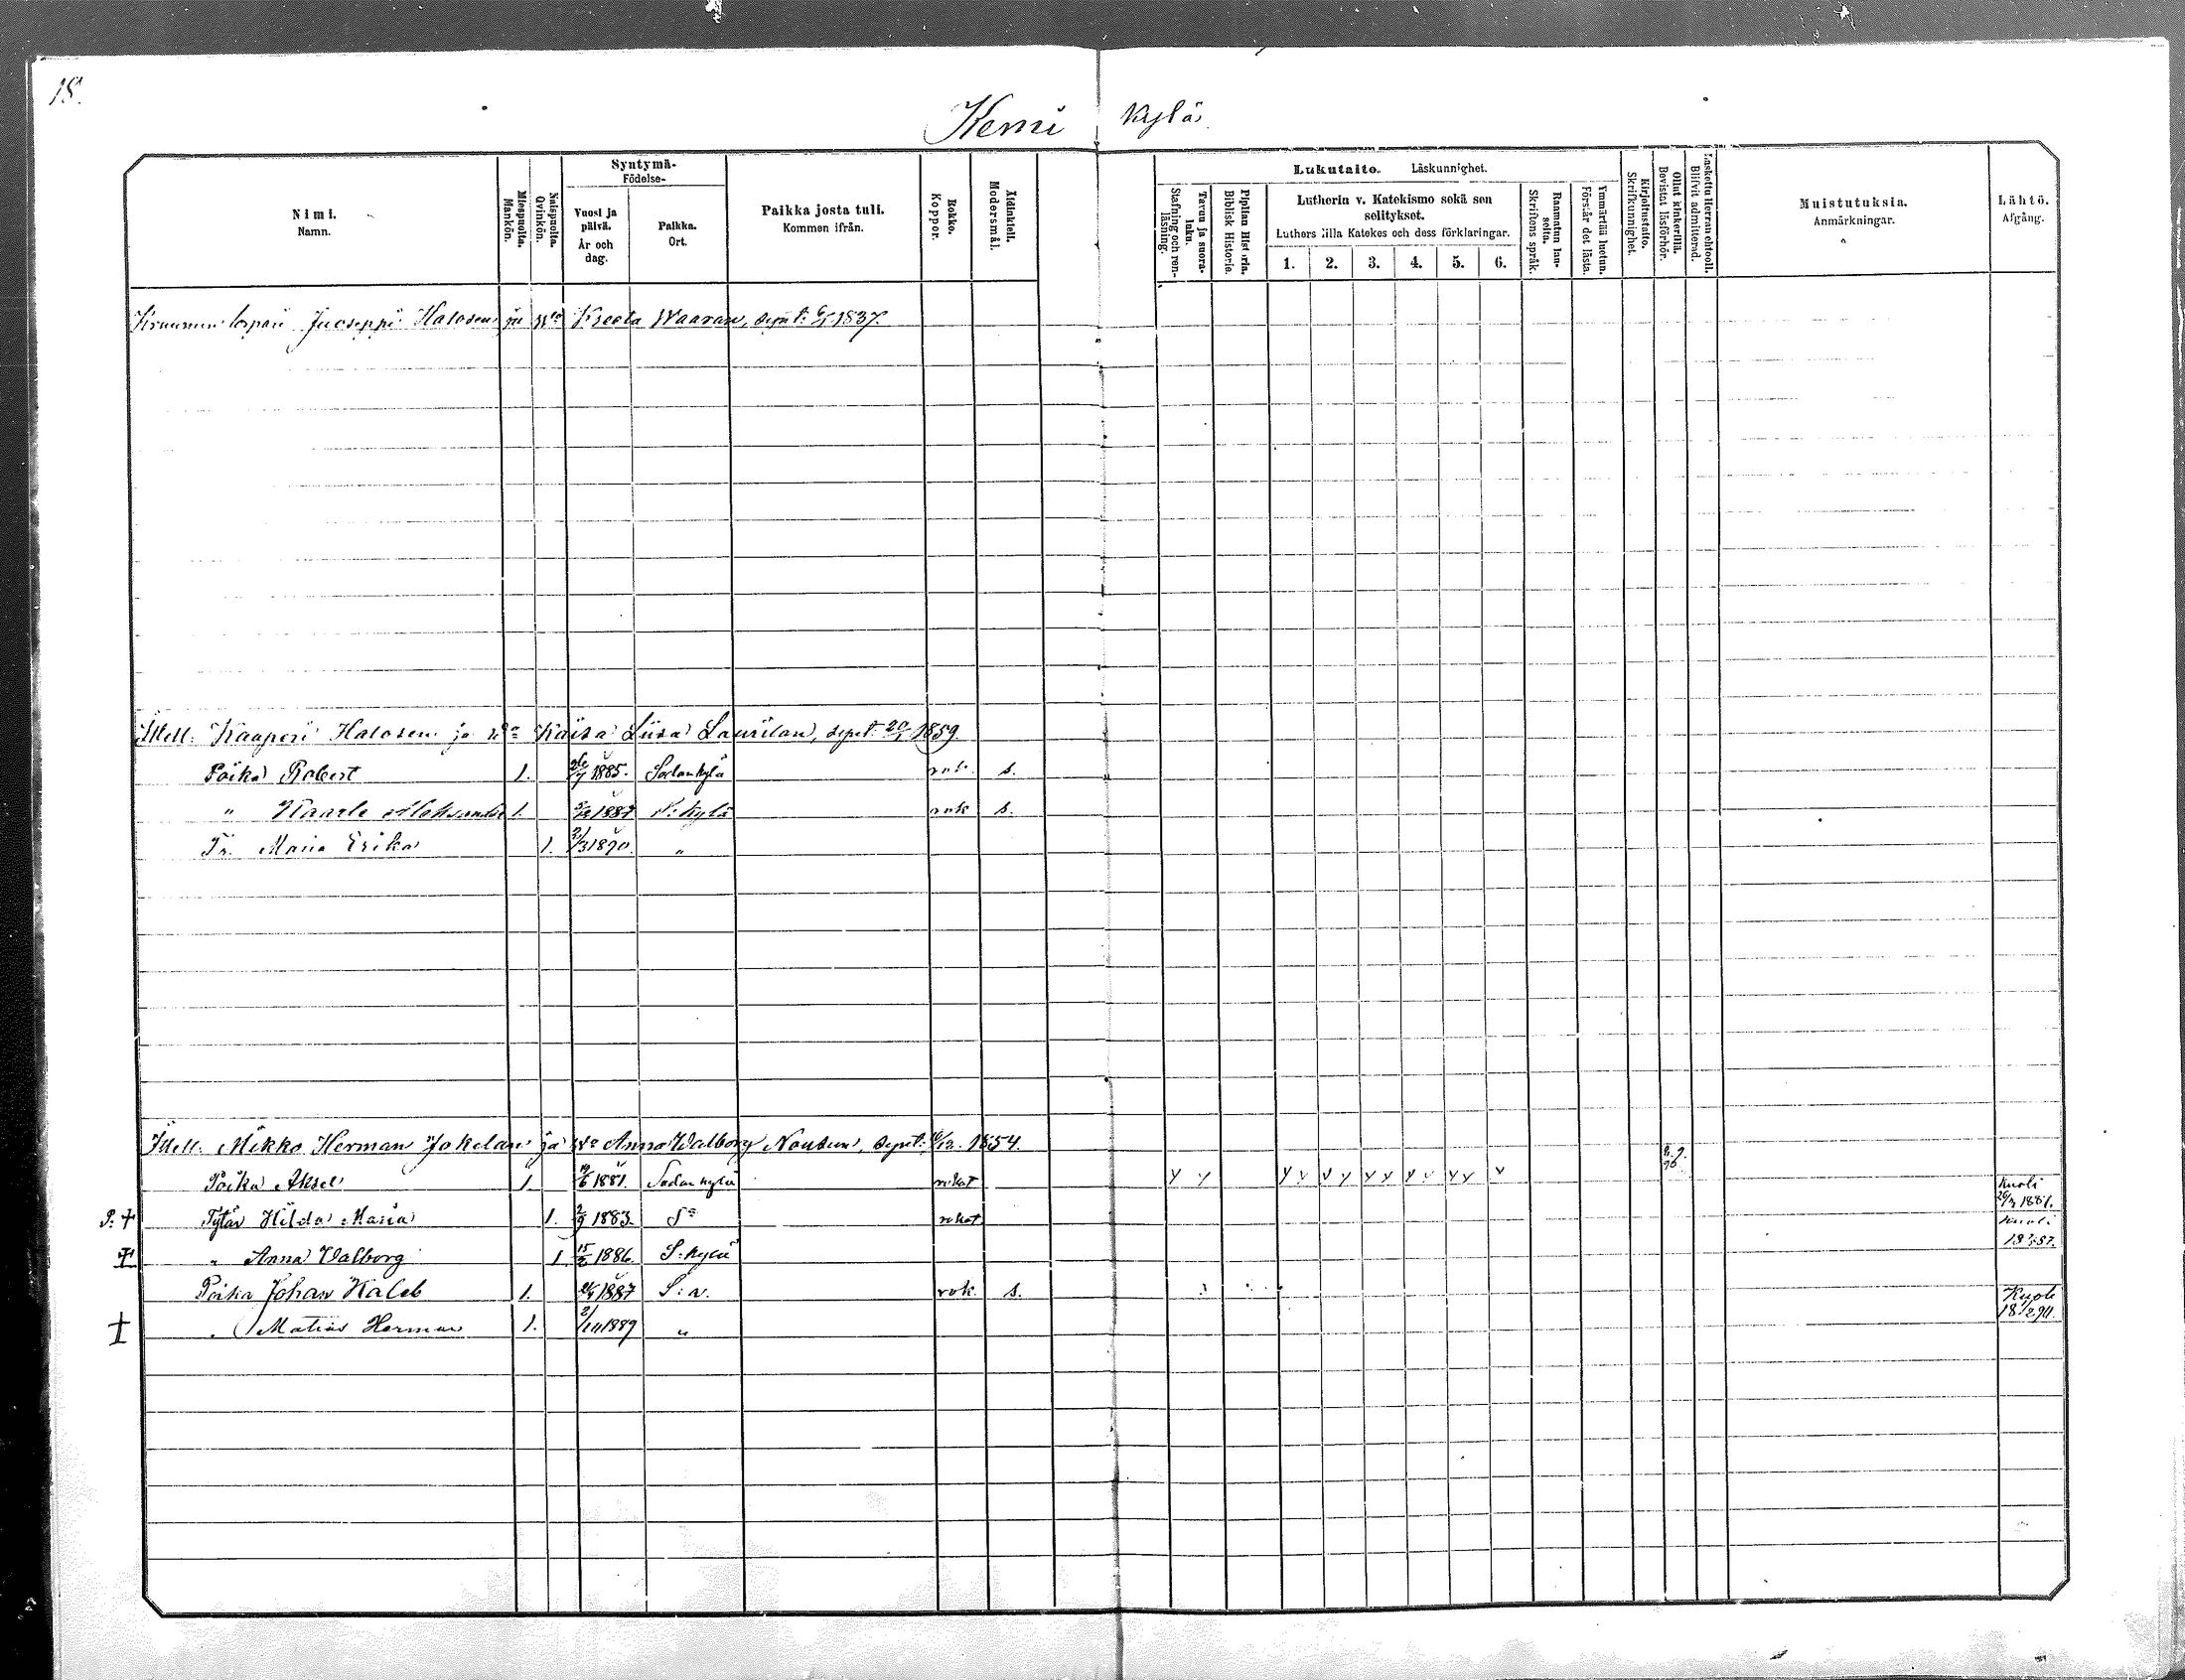 18.
Kemi kylä
Nimi. Namn.
Miespuolia. Mankön.
Naispuolia. Qvinkön.
Syntymä- Födelse-
Vuosi ja päivä. År och dag.
Paikka. Ort.
Paikka josta tuli. Kommen ifrån.
Rokko. Koppor.
Äidinkieli. Modersmål.
Lukutaito. Läskunnighet.
Tavuu ja suora-luku. Stafning och ren-läsning.
Piplian Historia. Biblisk Historia.
Lutherin v. Katekismo sekä sen selitykset.
Luthers lilla Katekes och dess förklaringar.
1. 2. 3. 4. 5. 6.
Raamatun lau-seita. Skriftens språk.
Ymmärtää luetun. Förstår det lästa.
Kirjoitustaito. Skrifkunnighet.
Ollut kinkerillä. Bevistat läsförhör.
Laskettu Herran ehtooll. Blifvit admitterad.
Muistutuksia. Anmärkningar.
Lähtö. Afgång.
Juoseppi Halosen ja Kreeta Waaran, synt. 1837.
Itsell. Kaaperi Halosen ja Kaisa Liisa Laurilan, synt. 1859.
Poika Robert 1. 1885. Sodankylä rok. s.
" Kaarle Aleksander 1. 1887 S:kylä rok s.
Tr. Maria Erika 1. 1890. "
Itsell. Mikko Herman Jokelan ja Anna Walborg Nousun, synt. 1854.
Poika Aksel 1. 1881. Sodankylä rokot
P. + Tytär Hilda Maria 1. 2/9 1883. rokot Kuoli
+ " Anna Valborg 1. 15/2 1886. S:kylä Kuoli
Poika Johan Kaleb 1. 1887 rok. s.
+ " Matias Herman 1. 1889 " Kuoli